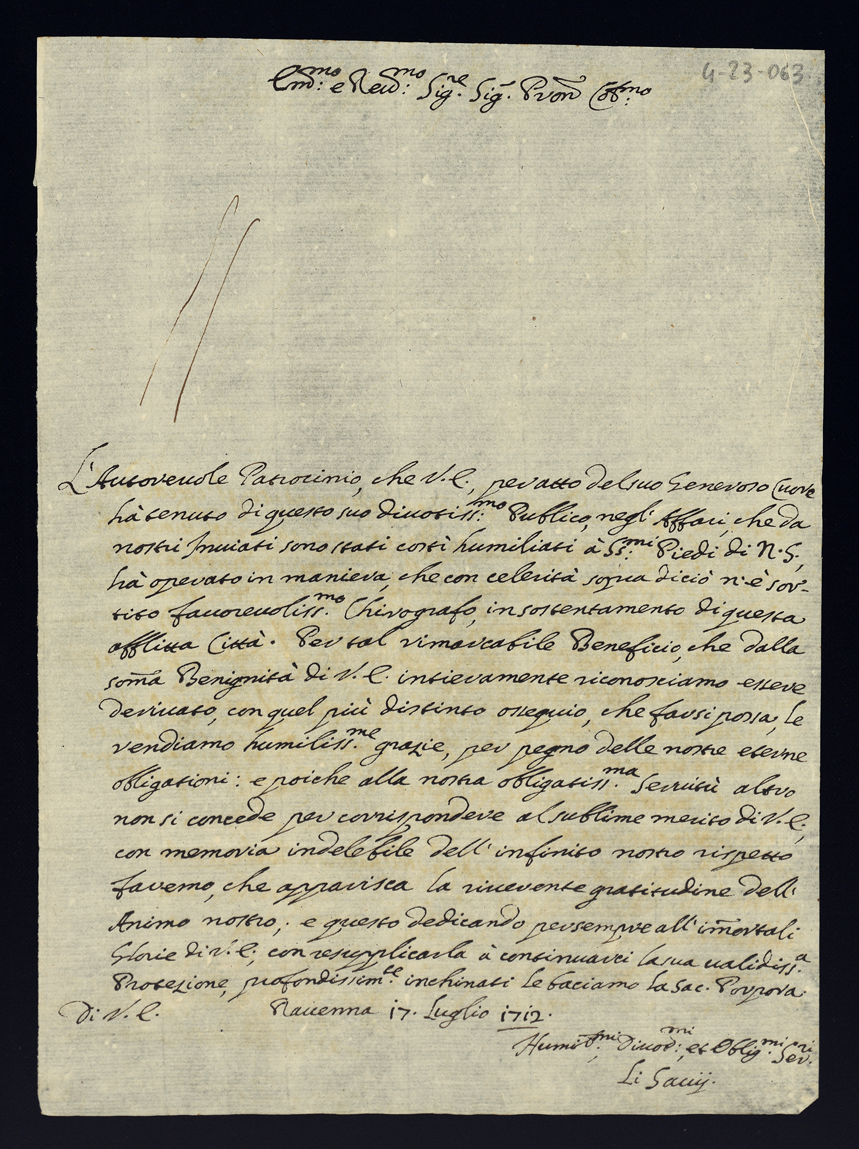 4-23-063
Em.mo e Reud.mo Sig.re Sig.r Pron Col.mo
L'Autoreuole Patrocinio, che V. E., per atto del suo Generoso Cuore
hà tenuto di questo suo diuotiss.mo Publico, negl'Affari, che da
nostri Inuiati sono stati costì humiliati à SS.mi Piedi di N. S.,
hà operato in maniera, che con celerità sopra di ciò n'è sor-
tito fauoreuoliss.mo Chirografo, in sostentamento di questa
afflitta Città. Per tal rimarcabile Beneficio, che dalla
som̃a Benignità di V. E. intieramente riconosciamo essere
deriuato, con quel più distinto ossequio, che farsi possa, le
rendiamo humiliss.me grazie, per pegno delle nostre eterne
obligationi: e poiche alla nostra obligatiss.ma Seruitù altro
non si concede per corrispondere al sublime merito di V. E.,
con memoria indelebile dell'infinito nostro rispetto
faremo, che apparisca la riuerente gratitudine dell'
Animo nostro; e questo dedicando per sempre all'im̃ortali
Glorie di V. E., con resupplicarla à continuarci la sua ualidiss.a
Protezione, profondissim.te inchinati le baciamo la Sac. Porpora.
Di V. E. Rauenna 17. Luglio 1712.
Humil.mi, Diuot.mi, et Oblig.mi Seru.ri
Li Sauij.